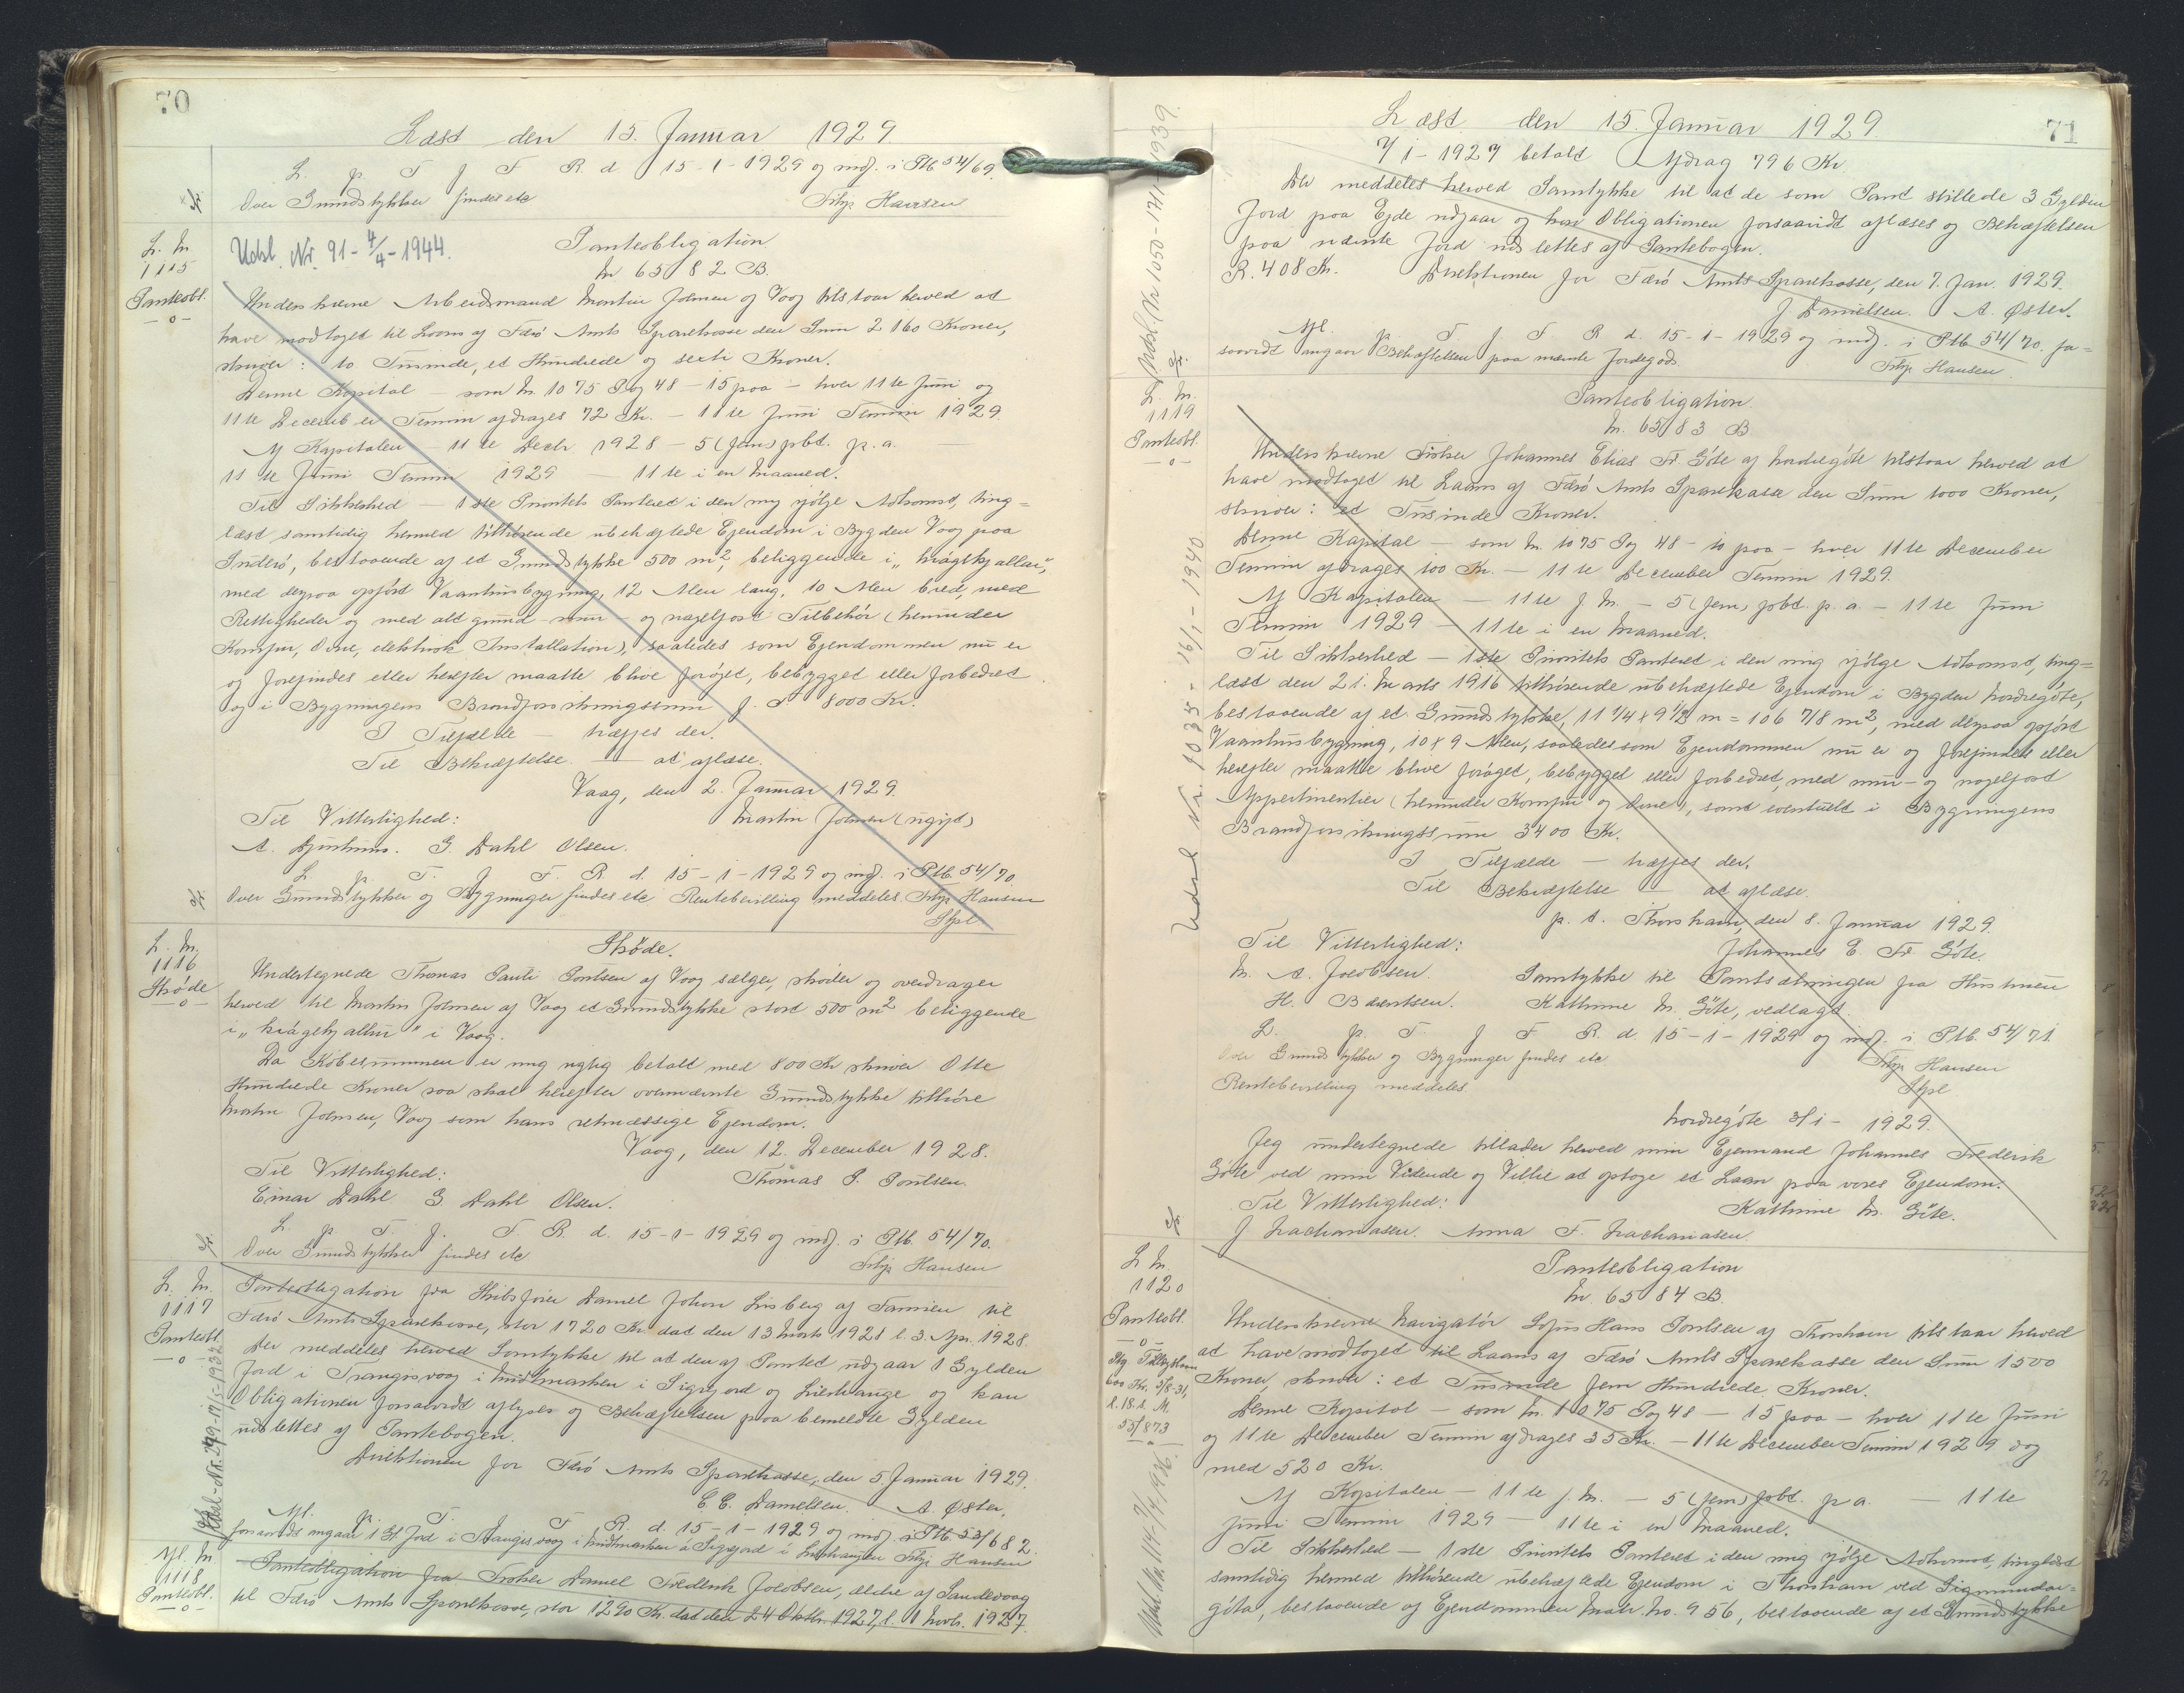 70
Læst den 15. Januar 1929
L. p. T. f. F. R. d. 15-1-1929 og indf. i Ptb 54/69.
Over Grundstykker findes etc Filip Hansen
L. N.
1115
Panteobl.
-o-
Udsl. Nr. 91-4/4-1944.
Panteobligation
Nr 6582 B.
Underskrevne Arbeidsmand Martin Joensen af Vaag tilstaar herved at
have modtaget til Laans af Færø Amts Sparekasse den Sum 2160 Kroner,
skriver: to Tusinde, et Hundrede og sexti Kroner.
Denne Kapital – som Nr. 1075 Pag 48 – 15 paa – hver 11te Juni og
11te December Termin afdrages 72 Kr. – 11te Juni Termin 1929.
Af Kapitalen – 11te Decbr. 1928 – 5 (fem) pbt. p.a. –
11te Juni Termin 1929 11te i en Maaned.
Til Sikkerhed – 1ste Prioritets Panteret i den mig ifølge Adkomst, ting=
læst samtidig hermed tilhørende ubehæftede Ejendom i Bygden Vaag paa
Suderø, bestaaende af et Grundstykke 500 m², beliggende i "Krágekjallari",
med derpaa opført Vaaninhusbygning, 12 Alen lang, 10 Alen bred, med
Rettigheder og med alt grund- mur og nagelfast Tilbehør (herunder
Komfur, Ovne, elektrisk Installation), saaledes som Ejendommen nu er
og forefindes eller herefter maatte blive forøget, bebygget eller forbedret
og i Bygningens Brandforsikringssum f. T. 8000 Kr.
I Tilfælde – træffes der.
Til Bekræftelse – at aflæse.
Vaag, den 2. Januar 1929.
Til Vitterlighed: Martin Joensen (ugift)
A. Djurhuus. G. Dahl Olsen.
L. p. T. f. F. R. d. 15-1-1929 og indf. i Ptb 54/70
Over Grundstykker og Bygninger findes etc Rentebevilling meddeles. Filip Hansen
Stpl
L. N.
1116
Skøde
-o-
Skøde.
Undertegnede Thomas Pauli Poulsen af Vaag sælger, skøder og overdrager
herved til Martin Joensen af Vaag et Grundstykke stort 500 m² beliggende
i "Krágekjallari" i Vaag.
Da Købesummen er mig rigtig betalt med 800 Kr skriver Otte
Hundrede Kroner saa skal herefter ovennævnte Grundstykke tilhøre
Martin Joensen, Vaag som hans retmæssige Ejendom.
Vaag, den 12. December 1928.
Til Vitterlighed: Thomas P. Poulsen.
Einar Dahl G. Dahl Olsen.
L. p. T. f. F. R. d. 15-1-1929 og indf. i Ptb. 54/70.
Over Grundstykker findes etc Filip Hansen
L. N.
1117
Panteobl.
-o-
Panteobligation fra Skibsfører Daniel Johan Lisberg af Famien til
Færø Amts Sparekasse, stor 1720 Kr dat den 13 Marts 1928 l. 3. Apr. 1928.
Der meddeles herved Samtykke til at den af Pantet udgaar 1 Gylden
Jord i Trangisvaag i Midtmarken i Sigrjord og Lidshange og kan
Obligationen forsaavidt aflyses og Behæftelsen paa bemeldte Gylden
udslettes af Pantebogen.
Direktionen for Færø Amts Sparekasse, den 5 Januar 1929.
C. C. Danielsen. A. Øster.
Afl. p. T. f. F. R. d. 15-1-1929 og indf. i Ptb. 53/682.
forsaavidt angaar 1 Gl. Jord i Trangisvaag i Midtmarken i Sigrjord i Lidshangen Filip Hansen
Afl. N.
1118
Panteobl.
-o-
Panteobligation fra Fisker Daniel Fredrik Jacobsen, ældre af Sandevaag
til Færø Amts Sparekasse, stor 1290 Kr. dat den 24 Oktbr. 1927, l. 1 Novb. 1927.
71
Læst den 15. Januar 1929
7/1-1927 betalt Afdrag 796 Kr
Der meddeles herved Samtykke til at de som Pant stillede 3 Gylden
Jord paa Ejde udgaar og kan Obligationen forsaavidt aflæses og Behæftelsen
paa nævnte Jord udslettes af Pantebogen.
R. 408 Kr. Direktionen for Færø Amts Sparekasse, den 7. Jan. 1929.
J Danielsen. A. Øster.
Afl. p. T. f. F. R. d. 15-1-1929 og indf. i Ptb 54/70. fo=
saavidt angaar Behæftelsen paa nævnte Jordegods. Filip Hansen.
L. N.
1119
Panteobl.
-o-
Udsl. Nr. 1035 - 16/1 - 1940
Panteobligation.
Nr. 6583 B
Underskrevne Fisker Johannes Elias Fr. Göte af Nordregöte tilstaar herved at
have modtaget til Laans af Færø Amts Sparekasse den Sum 1000 Kroner,
skriver: et Tusinde Kroner.
Denne Kapital – som Nr. 1075 Pag 48 – 10 paa – hver 11te December
Termin afdrages 100 Kr. – 11te December Termin 1929.
Af Kapitalen – 11te f. M. – 5 (fem) pbt. p. a. – 11te Juni
Termin 1929 – 11te i en Maaned.
Til Sikkerhed – 1ste Prioritets Panteret i den mig ifølge Adkomst, ting=
læst den 21. Marts 1916 tilhørende ubehæftede Ejendom i Bygden Nordregöte,
bestaaende af et Grundstykke, 11 1/4 x 9 1/2 m = 106 7/8 m², med derpaa opført
Vaaninhusbygning, 10 x 9 Alen, saaledes som Ejendommen nu er og forefindes eller
herefter maatte blive forøget, bebygget eller forbedret, med mur- og nagelfast
Appertinentier (herunder Komfur og Ovne), samt eventuelt i Bygningens
Brandforsikringssum 3400 Kr.
I Tilfælde – træffes der.
Til Bekræftelse – at aflæse.
p. t. Thorshavn, den 8. Januar 1929.
Til Vitterlighed: Johannes E. Fr. Göte.
M. A. Jacobsen. Samtykke til Pantsætningen fra Hustruen
H. Bærentsen. Kathrine M. Göte, vedlagt.
L. p. T. f. F. R. d. 15-1-1929 og indf. i Ptb. 54/71.
Over Grundstykker og Bygninger findes etc Filip Hansen
Rentebevilling meddeles Stpl
Nordregöte 3/1- 1929.
Jeg undertegnede tillader herved min Egemand Johannes Frederik
Göte ved min Vidende og Villie at optage et Laan paa vores Ejendom.
Til Vitterlighed: Kathrine M. Göte.
J Zachariasen. Anna F. Zachariasen.
L N.
1120
Panteobl.
-o-
600 Kr. 3/8-31,
55/873
Panteobligation
Nr. 6584 B.
Underskrevne Navigatør Sofus Hans Poulsen af Thorshavn tilstaar herved
at have modtaget til Laans af Færø Amts Sparekasse den Sum 1500
Kroner, skriver: et Tusinde fem Hundrede Kroner.
Denne Kapital – som Nr. 1075 Pag 48 – 15 paa – hver 11te Juni
og 11te December Termin afdrages 35 Kr. – 11te December Termin 1929 dog
med 520 Kr.
Af Kapitalen – 11te f. M. – 5 (fem) pbt. p a. – 11te
Juni Termin 1929 – 11te i en Maaned.
Til Sikkerhed – 1ste Prioritets Panteret i den mig ifølge Adkomst, tinglæst
samtidig hermed tilhørende ubehæftede Ejendom i Thorshavn ved Sigmundar=
göta, bestaaende af Ejendommen Matr. No. 956, bestaaende af et Grundstykke